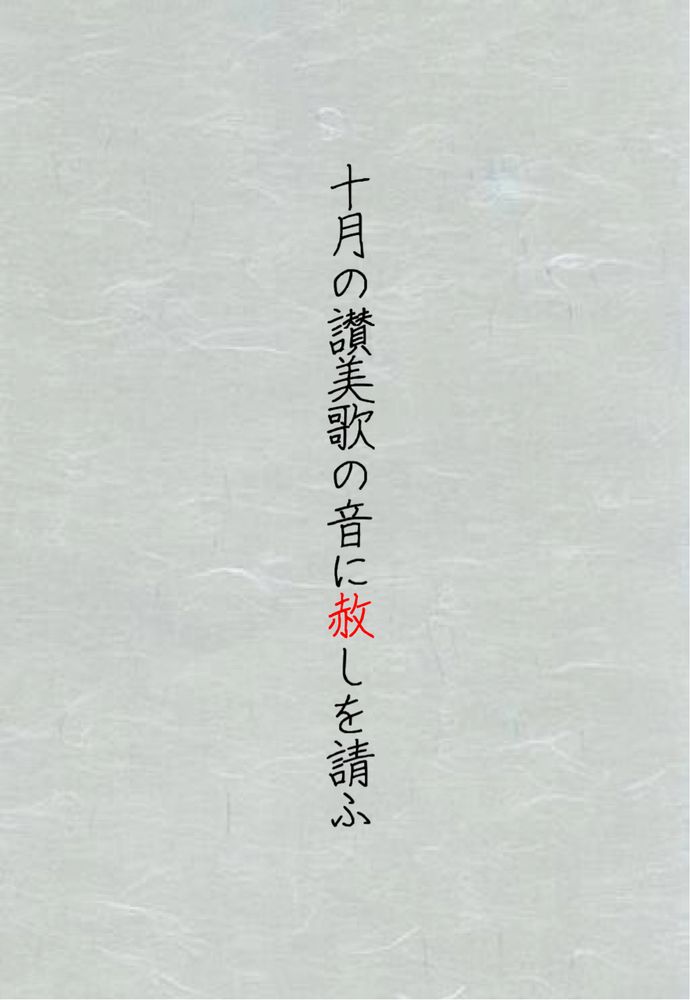 十月の讃美歌の音に赦しを請ふ